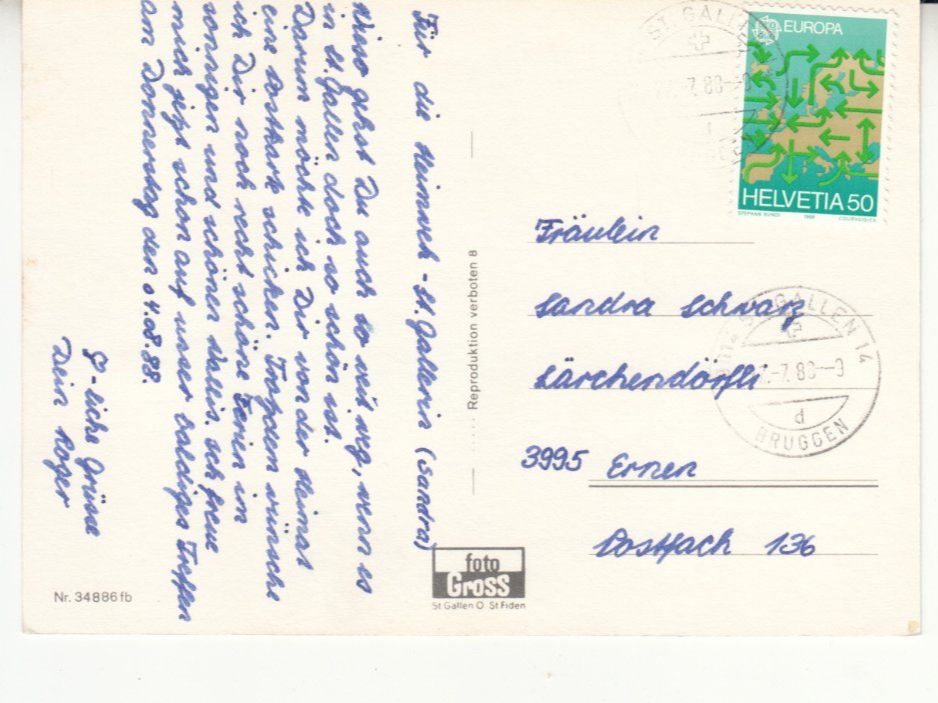 Für die Heimweh-St.Gallerin (Sandra)
Wieso gehst Du auch so weit weg, wenn es
in St.Gallen doch so schön ist.
Darum möchte ich Dir von der Heimat
eine Postkarte schicken. Trotzdem wünsche
ich Dir noch recht schöne Ferien im
sonnigen und schönen Wallis. Ich freue
mich jetzt schon auf unser baldiges Treffen
am Donnerstag den 04.08.88.
-liche Grüsse
Dein Roger
Nr. 34886 fb
Reproduktion verboten 8
foto
Gross
St Gallen O. St Fiden
EUROPA
HELVETIA 50
ST. GALLEN
-7.88--9
Fräulein
Sandra Schwarz
Lärchendörfli
3995 Ernen
Postfach 136
ST. GALLEN 14
-7.88--9
d
BRUGGEN